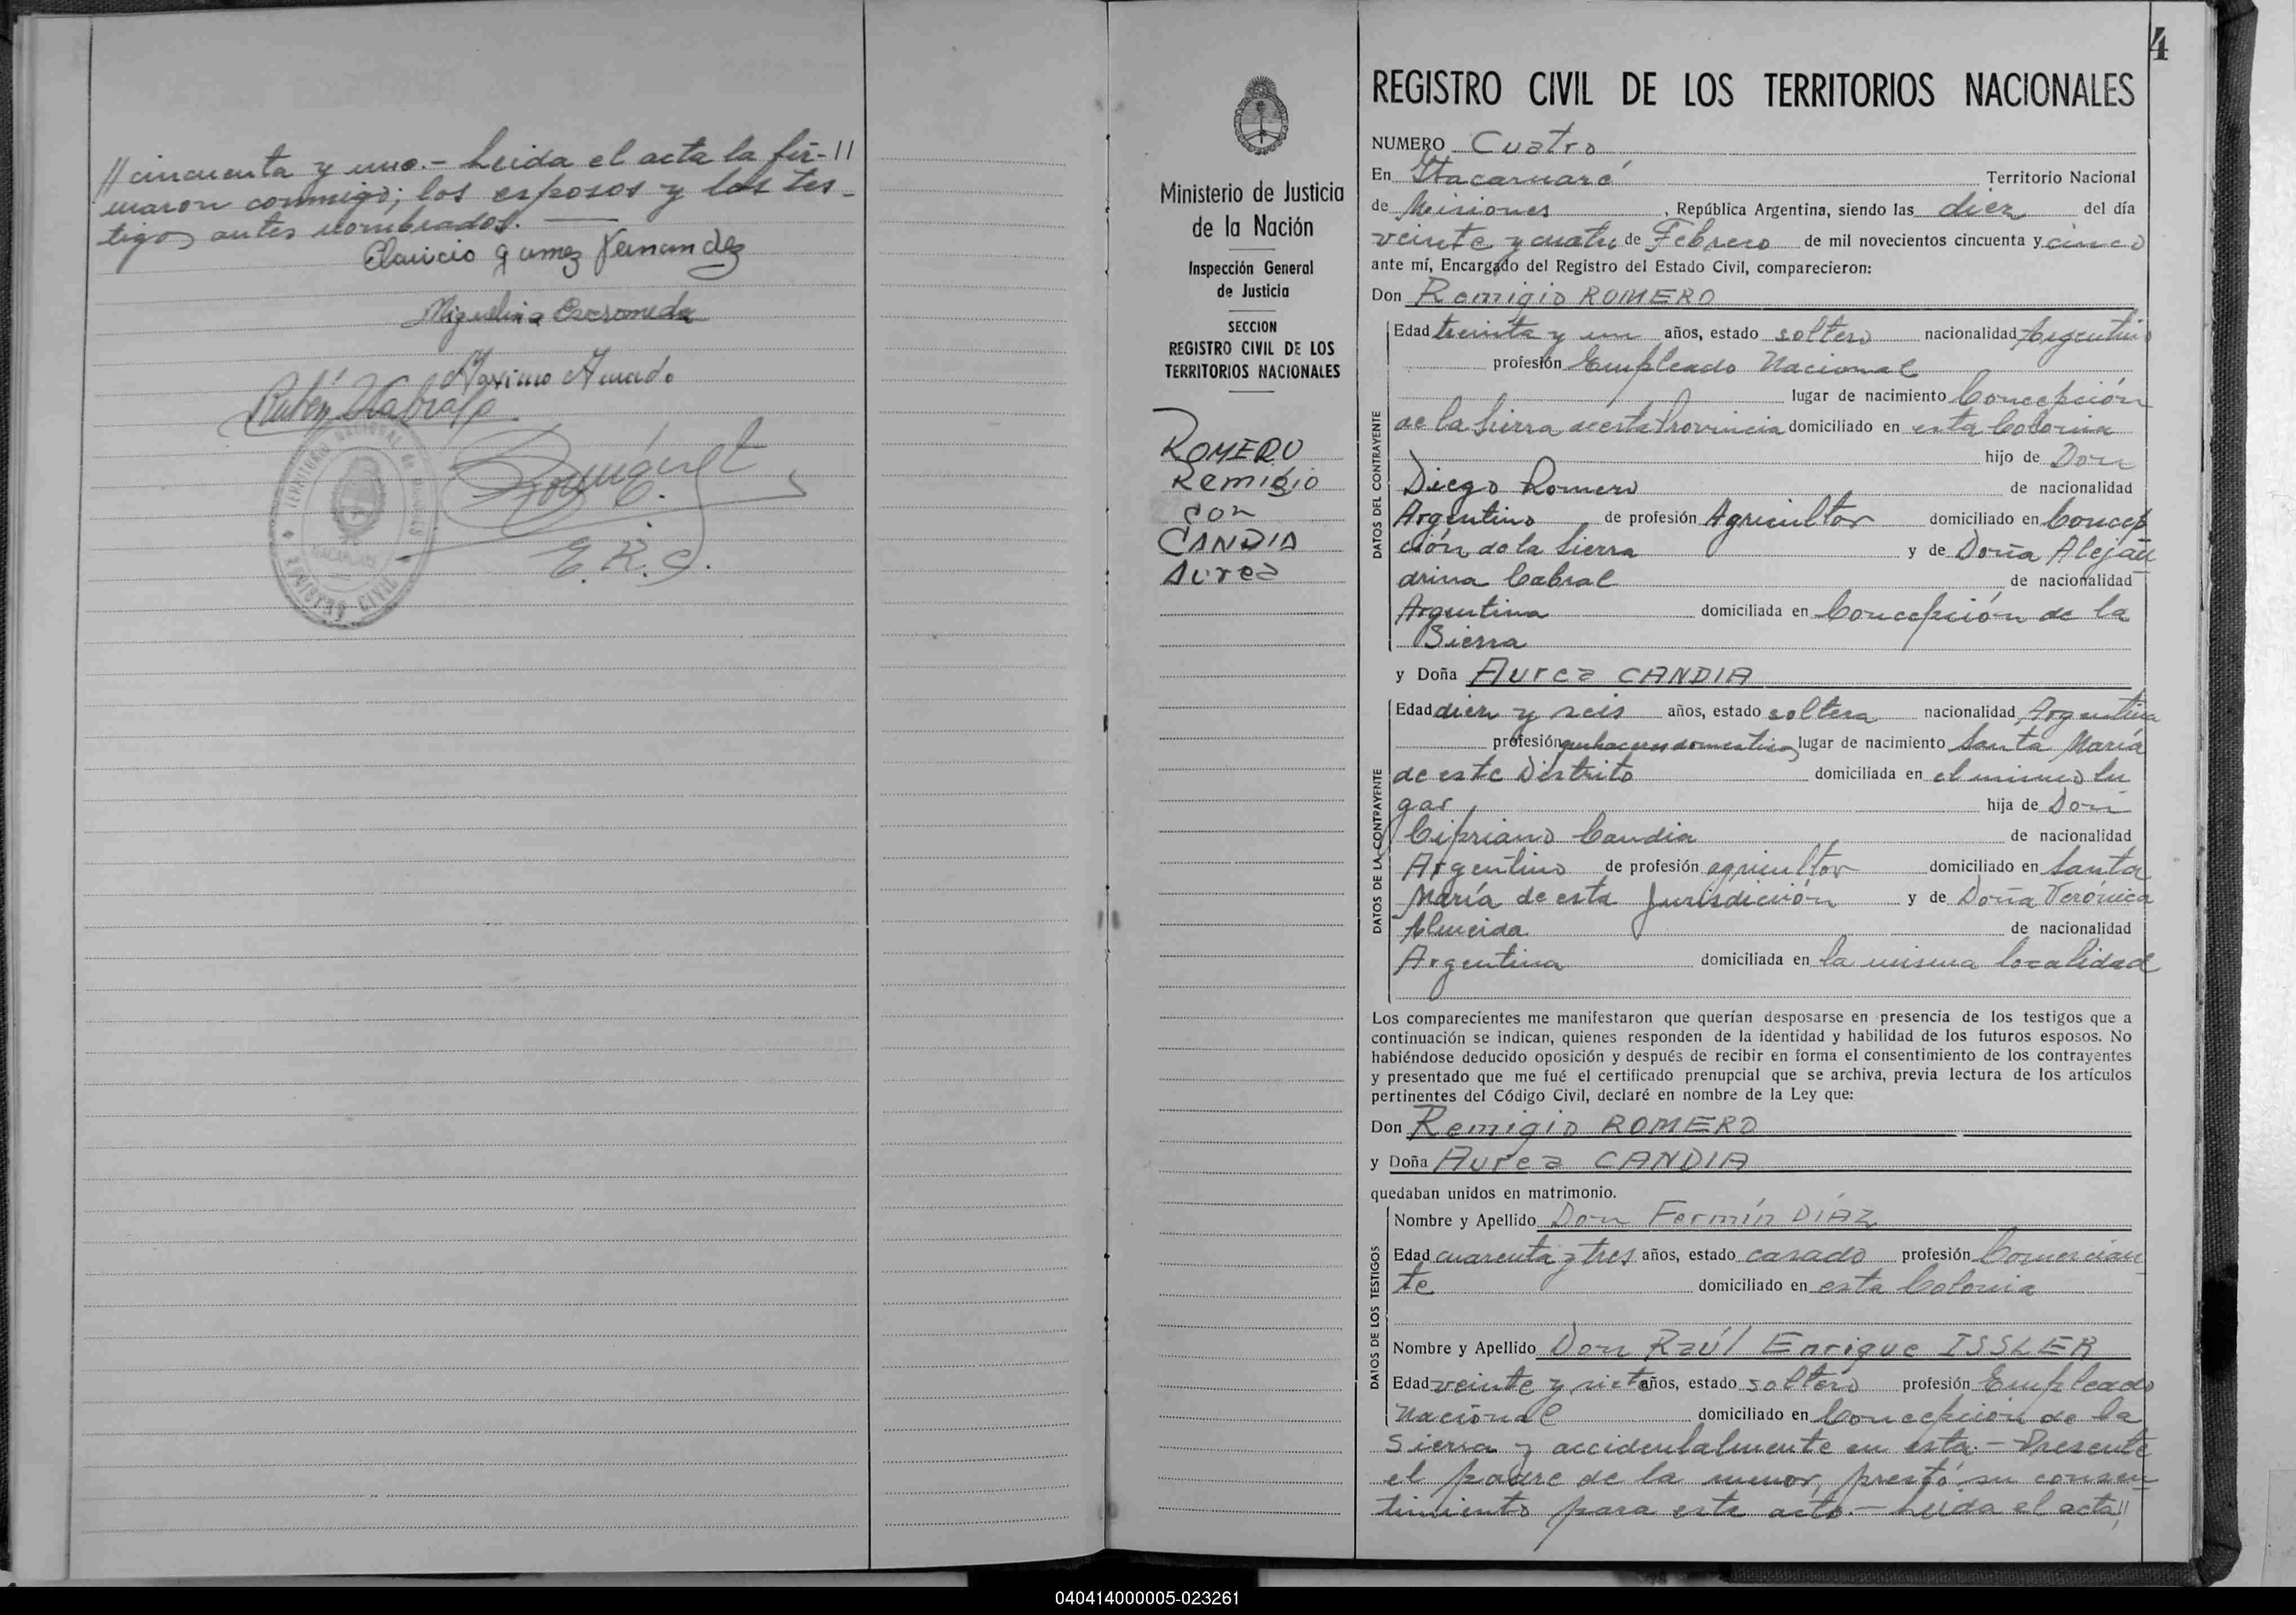 // cincuenta y uno.- Leida el acta la fir-//
maron conmigo; los esposos y los tes-
tigos antes nombrados.
Clauicio gomez Fernandez
Miguelina
Maximo Amado
Rubén
TERRITORIO NACIONAL DE MISIONES
REGISTRO CIVIL
E. R. C.
4
Ministerio de Justicia
de la Nación
Inspección General
de Justicia
SECCION
REGISTRO CIVIL DE LOS
TERRITORIOS NACIONALES
ROMERO
Remigio
con
CANDIA
Aurea
REGISTRO CIVIL DE LOS TERRITORIOS NACIONALES
NUMERO Cuatro
En Itacaruaré Territorio Nacional
de Misiones, República Argentina, siendo las diez del día
veinte y cuatro de Febrero de mil novecientos cincuenta y cinco
ante mí, Encargado del Registro del Estado Civil, comparecieron:
Don Remigio ROMERO
DATOS DEL CONTRAYENTE
Edad treinta y un años, estado soltero nacionalidad Argentino
profesión Empleado Nacional
lugar de nacimiento Concepción
de la Sierra de esta Provincia domiciliado en esta Colonia
hijo de Don
Diego Romero de nacionalidad
Argentino de profesión Agricultor domiciliado en Concep
ción de la Sierra y de Doña Alejan
drina Cabral de nacionalidad
Argentina domiciliada en Concepción de la
Sierra
y Doña Aurea CANDIA
DATOS DE LA CONTRAYENTE
Edad diez y seis años, estado soltera nacionalidad Argentina
profesión quehaceres domesticos lugar de nacimiento Santa María
de este Distrito domiciliada en el mismo lu
gar hija de Don
Cipriano Candia de nacionalidad
Argentino de profesión agricultor domiciliado en Santa
María de esta Jurisdicción y de Doña Verónica
Almeida de nacionalidad
Argentina domiciliada en la misma localidad
Los comparecientes me manifestaron que querían desposarse en presencia de los testigos que a
continuación se indican, quienes responden de la identidad y habilidad de los futuros esposos. No
habiéndose deducido oposición y después de recibir en forma el consentimiento de los contrayentes
y presentado que me fué el certificado prenupcial que se archiva, previa lectura de los artículos
pertinentes del Código Civil, declaré en nombre de la Ley que:
Don Remigio ROMERO
y Doña Aurea CANDIA
quedaban unidos en matrimonio.
DATOS DE LOS TESTIGOS
Nombre y Apellido Don Fermín DÍAZ
Edad cuarenta y tres años, estado casado profesión Comercian
te domiciliado en esta Colonia
Nombre y Apellido Don Raúl Enrique ISSLER
Edad veinte y siete años, estado soltero profesión Empleado
Nacional domiciliado en Concepción de la
Sierra y accidentalmente en esta.- Presente
el padre de la menor, prestó su consen-
timiento para este acto.- Leida el acta//
040414000005-023261